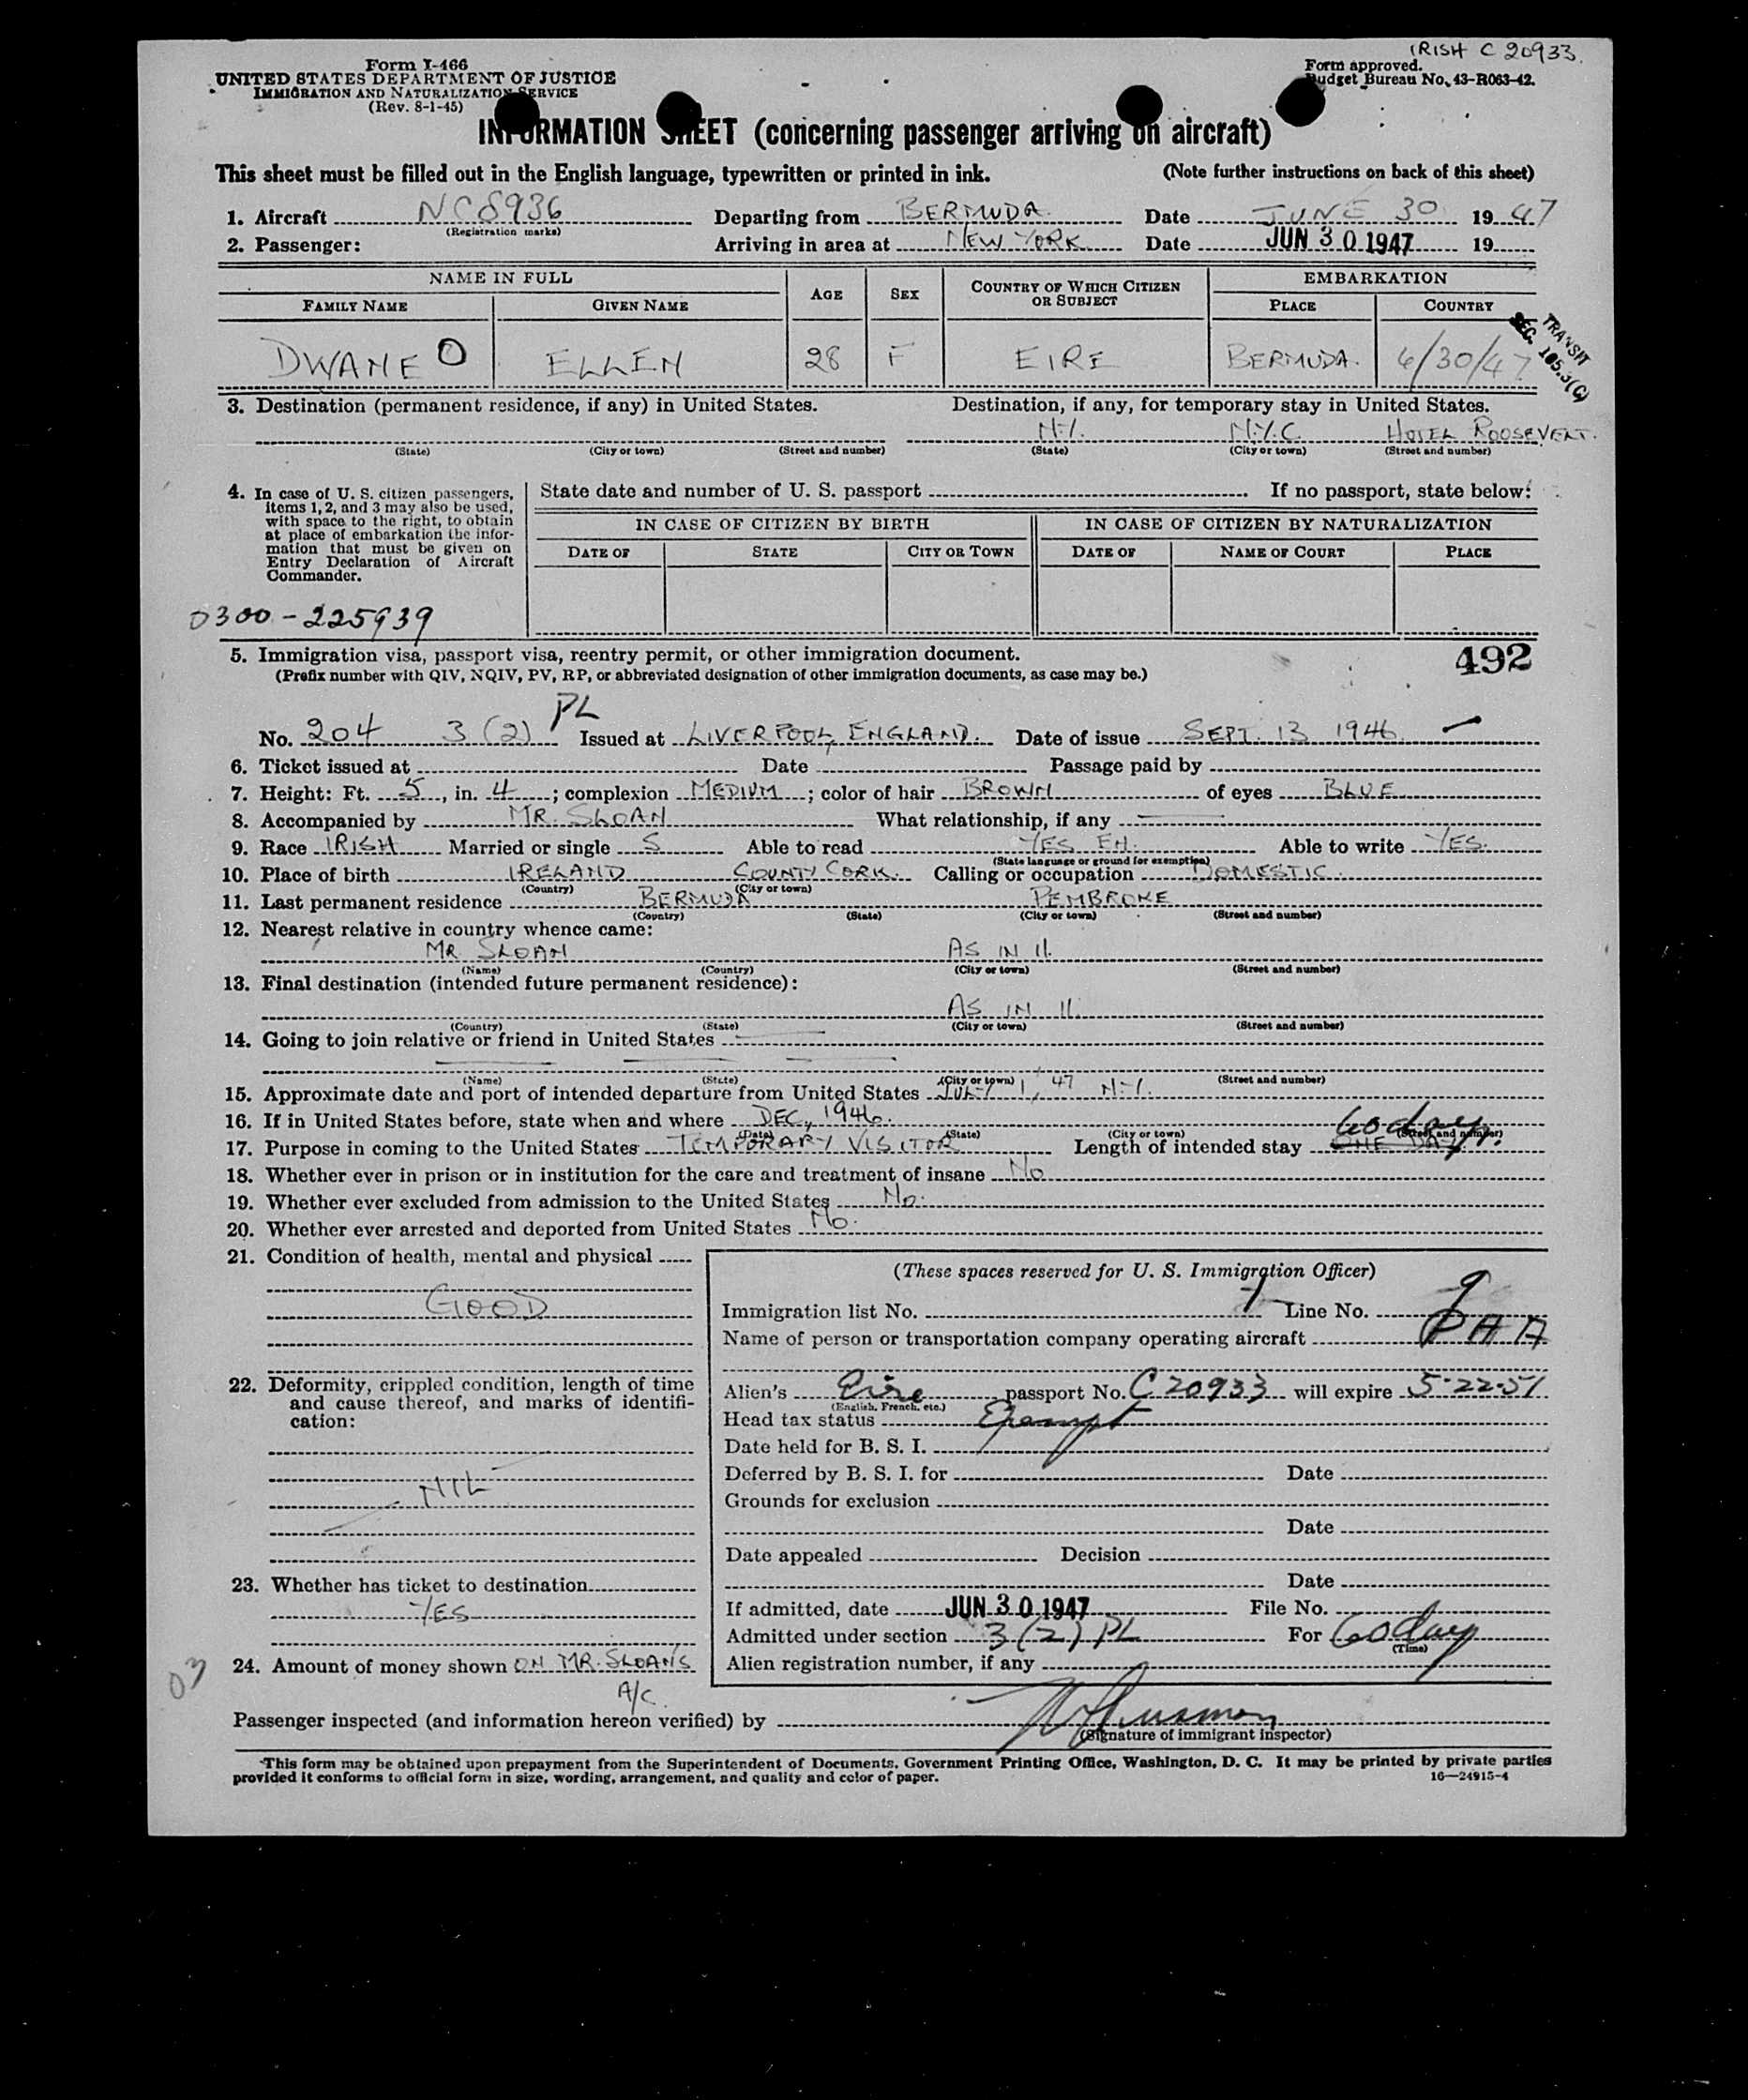 IRISH C 20933.
Form I-466
UNITED STATES DEPARTMENT OF JUSTICE
IMMIGRATION AND NATURALIZATION SERVICE
(Rev. 8-1-45)
Form approved.
Budget Bureau No. 43-R063-42.
INFORMATION SHEET (concerning passenger arriving on aircraft)
This sheet must be filled out in the English language, typewritten or printed in ink. (Note further instructions on back of this sheet)
1. Aircraft NC8936 Departing from BERMUDA. Date JUNE 30 1947
(Registration marks)
2. Passenger: Arriving in area at NEW YORK Date JUN 30 1947 19
NAME IN FULL AGE SEX COUNTRY OF WHICH CITIZEN OR SUBJECT EMBARKATION
FAMILY NAME GIVEN NAME PLACE COUNTRY
TRANSIT
SEC. 105.3(C)
DWANE O ELLEN 28 F EIRE BERMUDA. 6/30/47
3. Destination (permanent residence, if any) in United States. Destination, if any, for temporary stay in United States.
N.Y. N.Y.C. HOTEL ROOSEVELT.
(State) (City or town) (Street and number) (State) (City or town) (Street and number)
4. In case of U. S. citizen passengers, items 1, 2, and 3 may also be used, with space to the right, to obtain at place of embarkation the information that must be given on Entry Declaration of Aircraft Commander.
State date and number of U. S. passport If no passport, state below:
IN CASE OF CITIZEN BY BIRTH IN CASE OF CITIZEN BY NATURALIZATION
DATE OF STATE CITY OR TOWN DATE OF NAME OF COURT PLACE
0300-225939
5. Immigration visa, passport visa, reentry permit, or other immigration document. 492
(Prefix number with QIV, NQIV, PV, RP, or abbreviated designation of other immigration documents, as case may be.)
PL
No. 204 3(2) Issued at LIVERPOOL, ENGLAND. Date of issue SEPT. 13 1946
6. Ticket issued at Date Passage paid by
7. Height: Ft. 5, in. 4; complexion MEDIUM; color of hair BROWN of eyes BLUE
8. Accompanied by MR. SLOAN What relationship, if any —
9. Race IRISH Married or single S Able to read YES EN. Able to write YES.
(State language or ground for exemption)
10. Place of birth IRELAND COUNTY CORK. Calling or occupation DOMESTIC.
(Country) (City or town)
11. Last permanent residence BERMUDA PEMBROKE
(Country) (State) (City or town) (Street and number)
12. Nearest relative in country whence came:
MR SLOAN AS IN 11.
(Name) (Country) (City or town) (Street and number)
13. Final destination (intended future permanent residence):
AS IN 11.
(Country) (State) (City or town) (Street and number)
14. Going to join relative or friend in United States —
(Name) (State) (City or town) (Street and number)
15. Approximate date and port of intended departure from United States JULY 1, '47 N.Y.
16. If in United States before, state when and where DEC, 1946.
(Date) (State) (City or town) (Street and number)
17. Purpose in coming to the United States TEMPORARY VISITOR Length of intended stay ONE DAY 60 days.
18. Whether ever in prison or in institution for the care and treatment of insane No
19. Whether ever excluded from admission to the United States No.
20. Whether ever arrested and deported from United States No.
21. Condition of health, mental and physical
GOOD
22. Deformity, crippled condition, length of time and cause thereof, and marks of identification:
NIL
23. Whether has ticket to destination
YES
24. Amount of money shown ON MR. SLOAN'S
A/C.
03
(These spaces reserved for U. S. Immigration Officer)
Immigration list No. 1 Line No. 9
Name of person or transportation company operating aircraft PAA
Alien's Eire passport No. C 20933 will expire 5-22-51
(English, French, etc.)
Head tax status Exempt
Date held for B. S. I.
Deferred by B. S. I. for Date
Grounds for exclusion
Date
Date appealed Decision
Date
If admitted, date JUN 30 1947 File No.
Admitted under section 3(2) PL For 60 days
(Time)
Alien registration number, if any
Passenger inspected (and information hereon verified) by
(Signature of immigrant inspector)
This form may be obtained upon prepayment from the Superintendent of Documents, Government Printing Office, Washington, D. C. It may be printed by private parties
provided it conforms to official form in size, wording, arrangement, and quality and color of paper. 16—24915-4